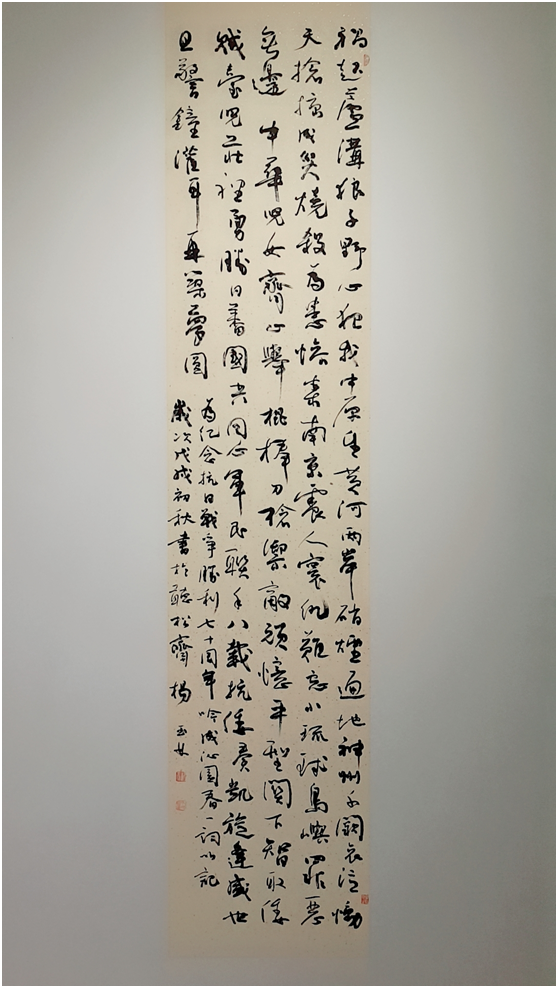 禍起蘆溝狼子野心犯我中原看黄河兩岸硝煙遍地神州千闕哀泣慟
天搶掠成災燒殺為患慘案南京震人寰仇難忘小琉球島嶼罪惡
無邊中華兒女齊心舉棍棒刀槍禦敵頑憶平型關下智取倭
賊臺兒莊裡勇勝日蕃國共同心軍民聯手八載抗倭奏凱旋逢盛世
且警鐘灌耳再築夢圓
為纪念抗日戰争勝利七十周年吟成沁園春一詞以記
歲次戊戌初秋書於聽松齋楊玉林